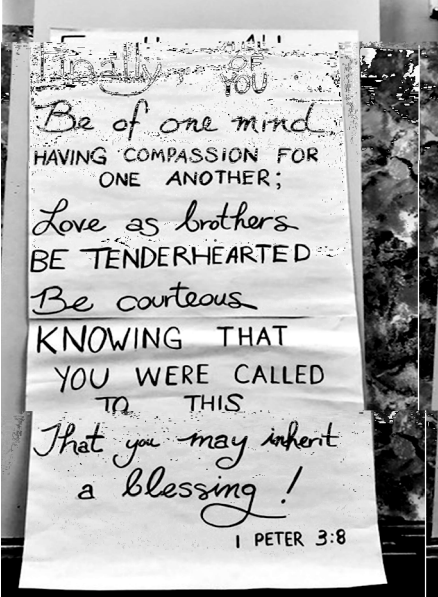 Finally
OF
YOU
Be of one mind
HAVING COMPASSION FOR
ONE ANOTHER;
Love as brothers
BE TENDERHEARTED
Be courteous
KNOWING THAT
YOU WERE CALLED
TO THIS
That you may inherit
a blessing!
1 PETER 3:8